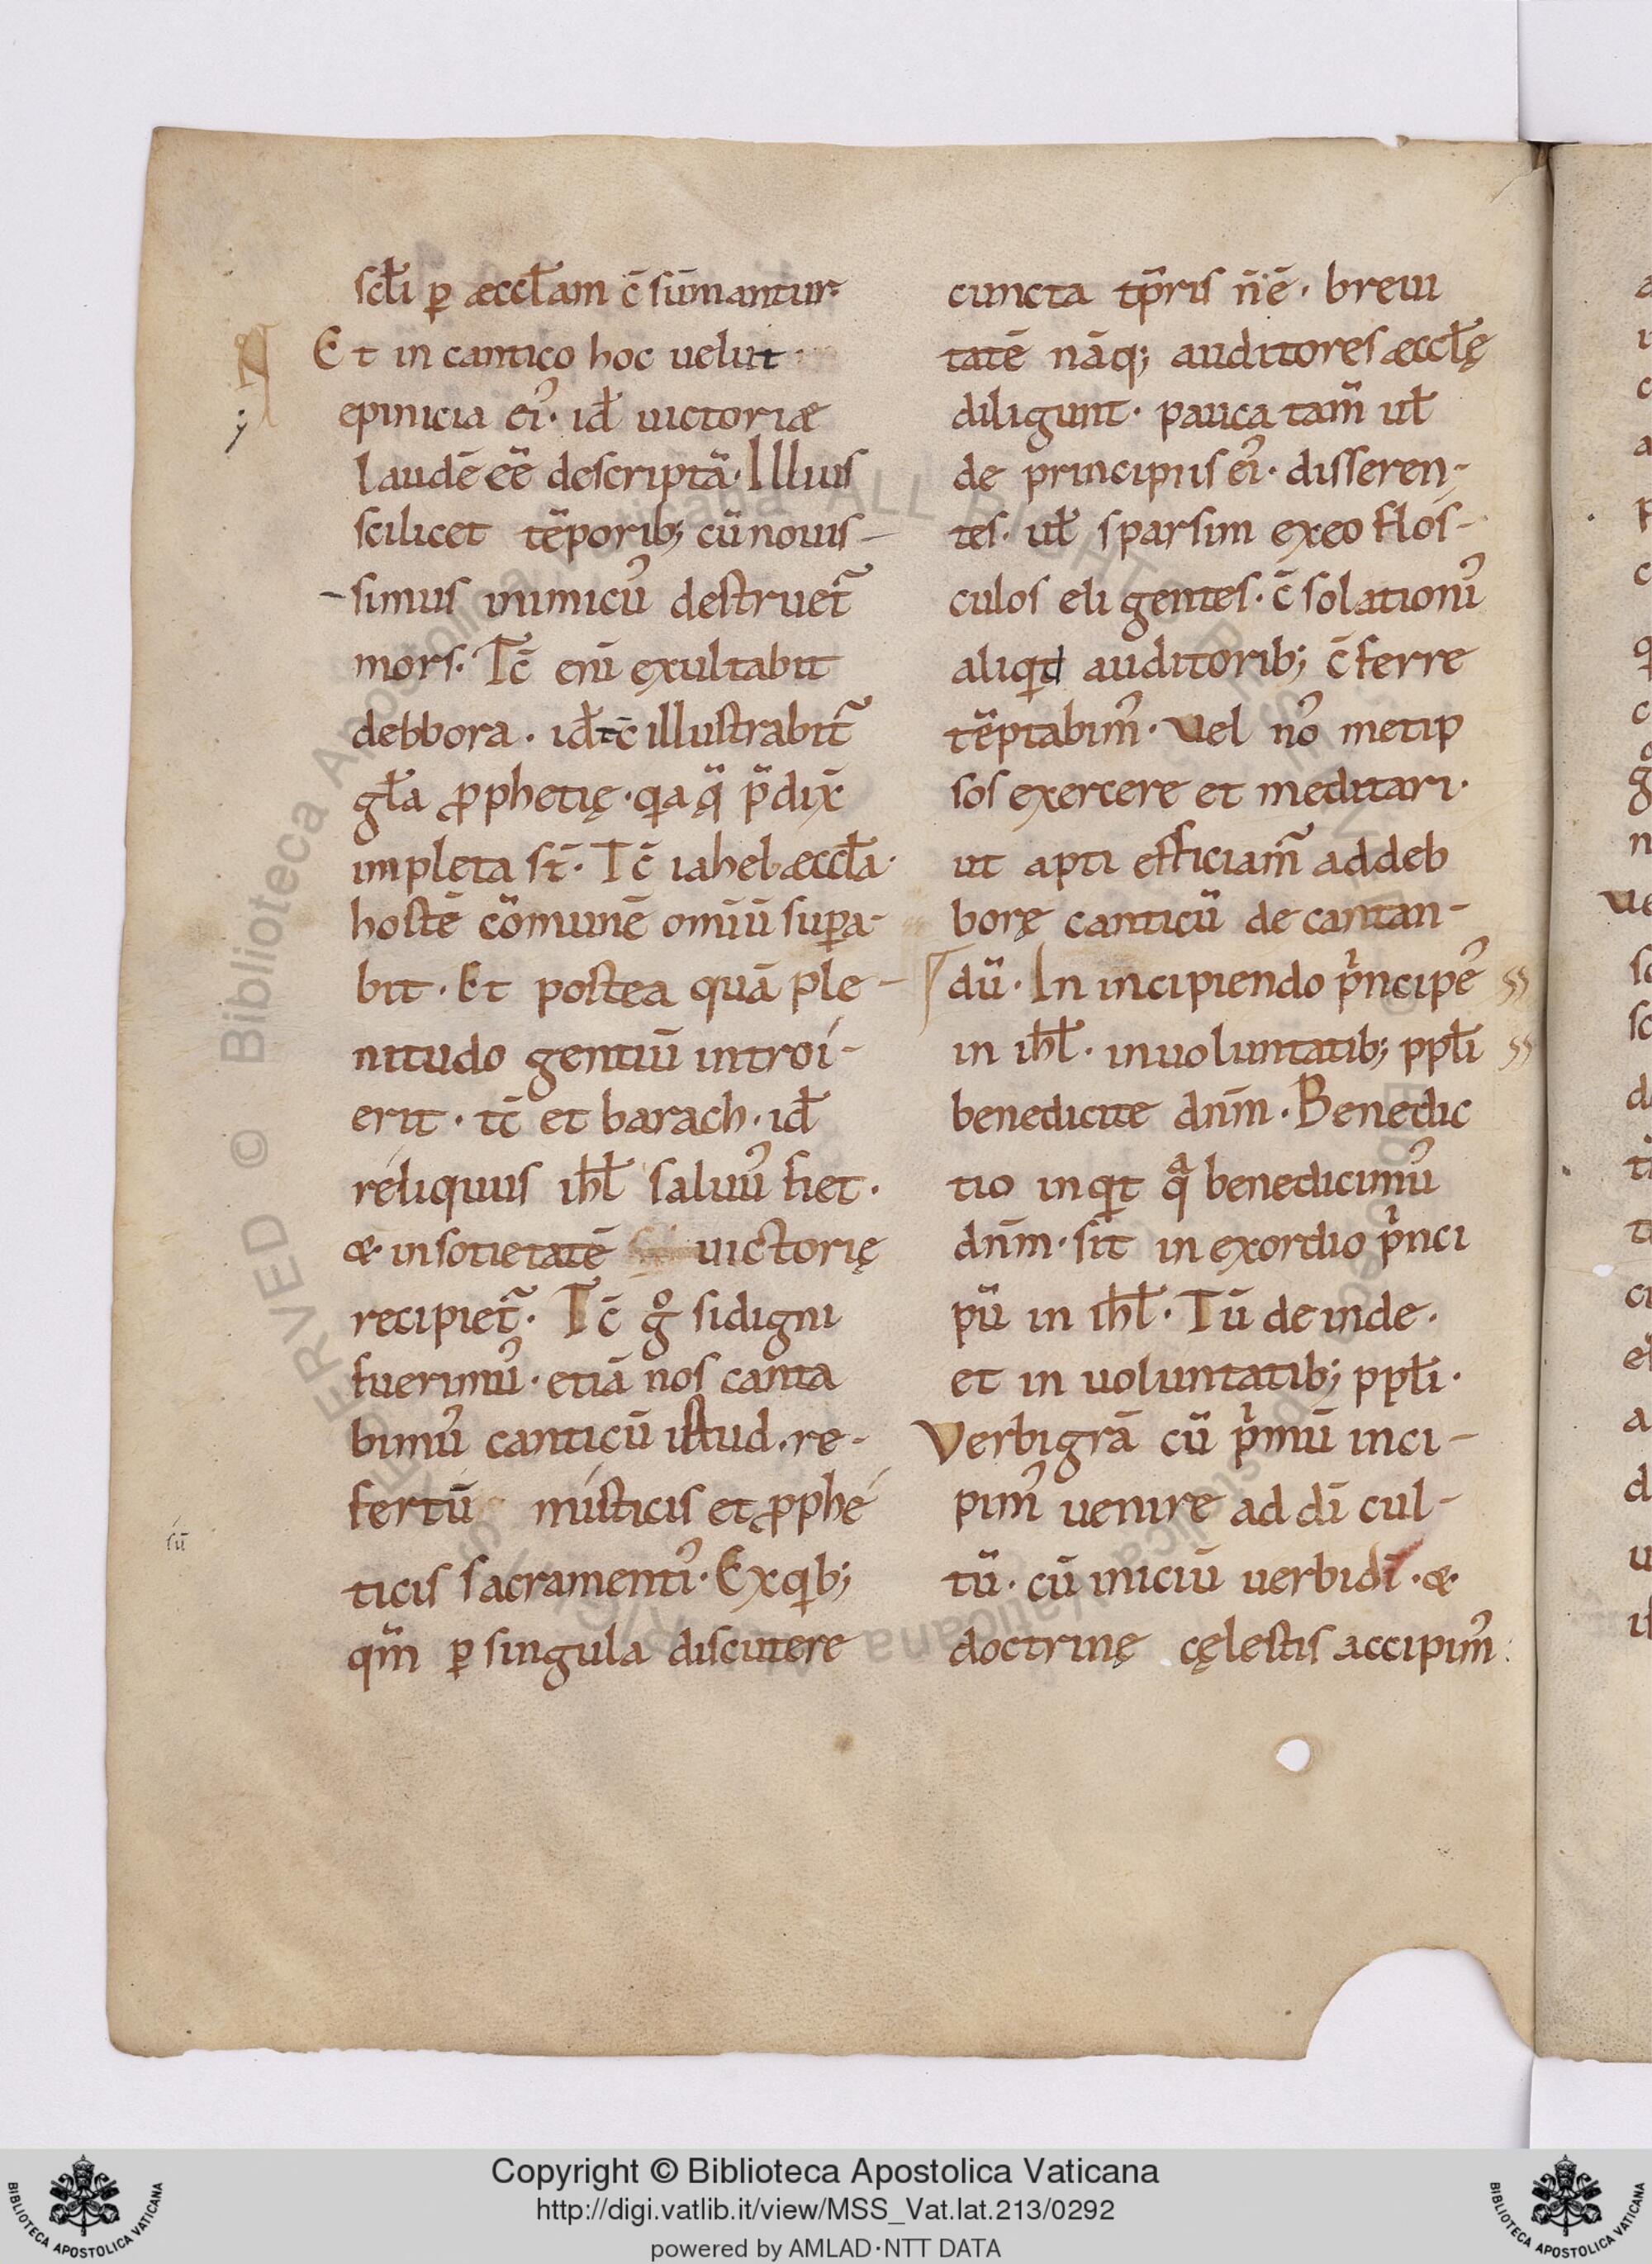 scłi ꝑ æccłam c̄ sūmantur·
Et in cantico hoc uelut·
epinicia ei᾽· id̄ uictoriæ
laudē eē descriptā· Illius
scilicet tēporib; cū nouis-
-simus inimicu᾽ destruet᷑
mors· Tc̄ eni̅ exultabit
debbora· id̄ tc̄ illustrabit᷑
gła ꝓphetię· qa q̄ p̄dix̄
impleta st̄· Tc̄ iahel æccła·
hostē cōmunē omiū suꝑa-
bit· Et postea quā ple-
nitudo gentiū introi-
erit· tc̄ et barach· id̄
reliquuis ihł saluu᾽ fiet·
& in sotietatē uictorię
recipiet᷑· Tc̄ gͦ si digni
fuerimu᾽· etiā nos canta
bimu᾽ canticū istud· re-
fertū misticis et ꝓphe
ticis sacramenti᾽· Ex qib;
qm̄ ꝑ singula discutere
cuncta tp̄ris n̄ ē· breui
tatē nāq; auditores æccłę
diligunt· pauca tam̄ uł
de principiis ei᾽· disseren-
tes· uł sparsim ex eo flos-
culos eligentes· c̄solationi᾽
aliqid auditorib; c̄ferre
tēptabim᾽· Vel no᾽ metip
sos exercere et meditari·
ut apti efficiam᷑ ad deb
borę canticū decantan-
dū· In incipiendo pⁱncipe᾽
in ihł· in uoluntatib; ppłi
benedicite dn̄m· Benedic
tio inqit qͣ benedicimu᾽
dn̄m· sit in exordio pⁱnci
pū in ihł· Tū deinde·
et in uoluntatib; ppłi·
Verbi grā cū pⁱmū inci-
pim᾽ uenire ad dī cul-
tū· cū iniciū uerbi dī· &
doctrinę cęlestis accipim᾽
sū
Copyright © Biblioteca Apostolica Vaticana
http://digi.vatlib.it/view/MSS_Vat.lat.213/0292
powered by AMLAD·NTT DATA
BIBLIOTECA APOSTOLICA VATICANA
BIBLIOTECA APOSTOLICA VATICANA